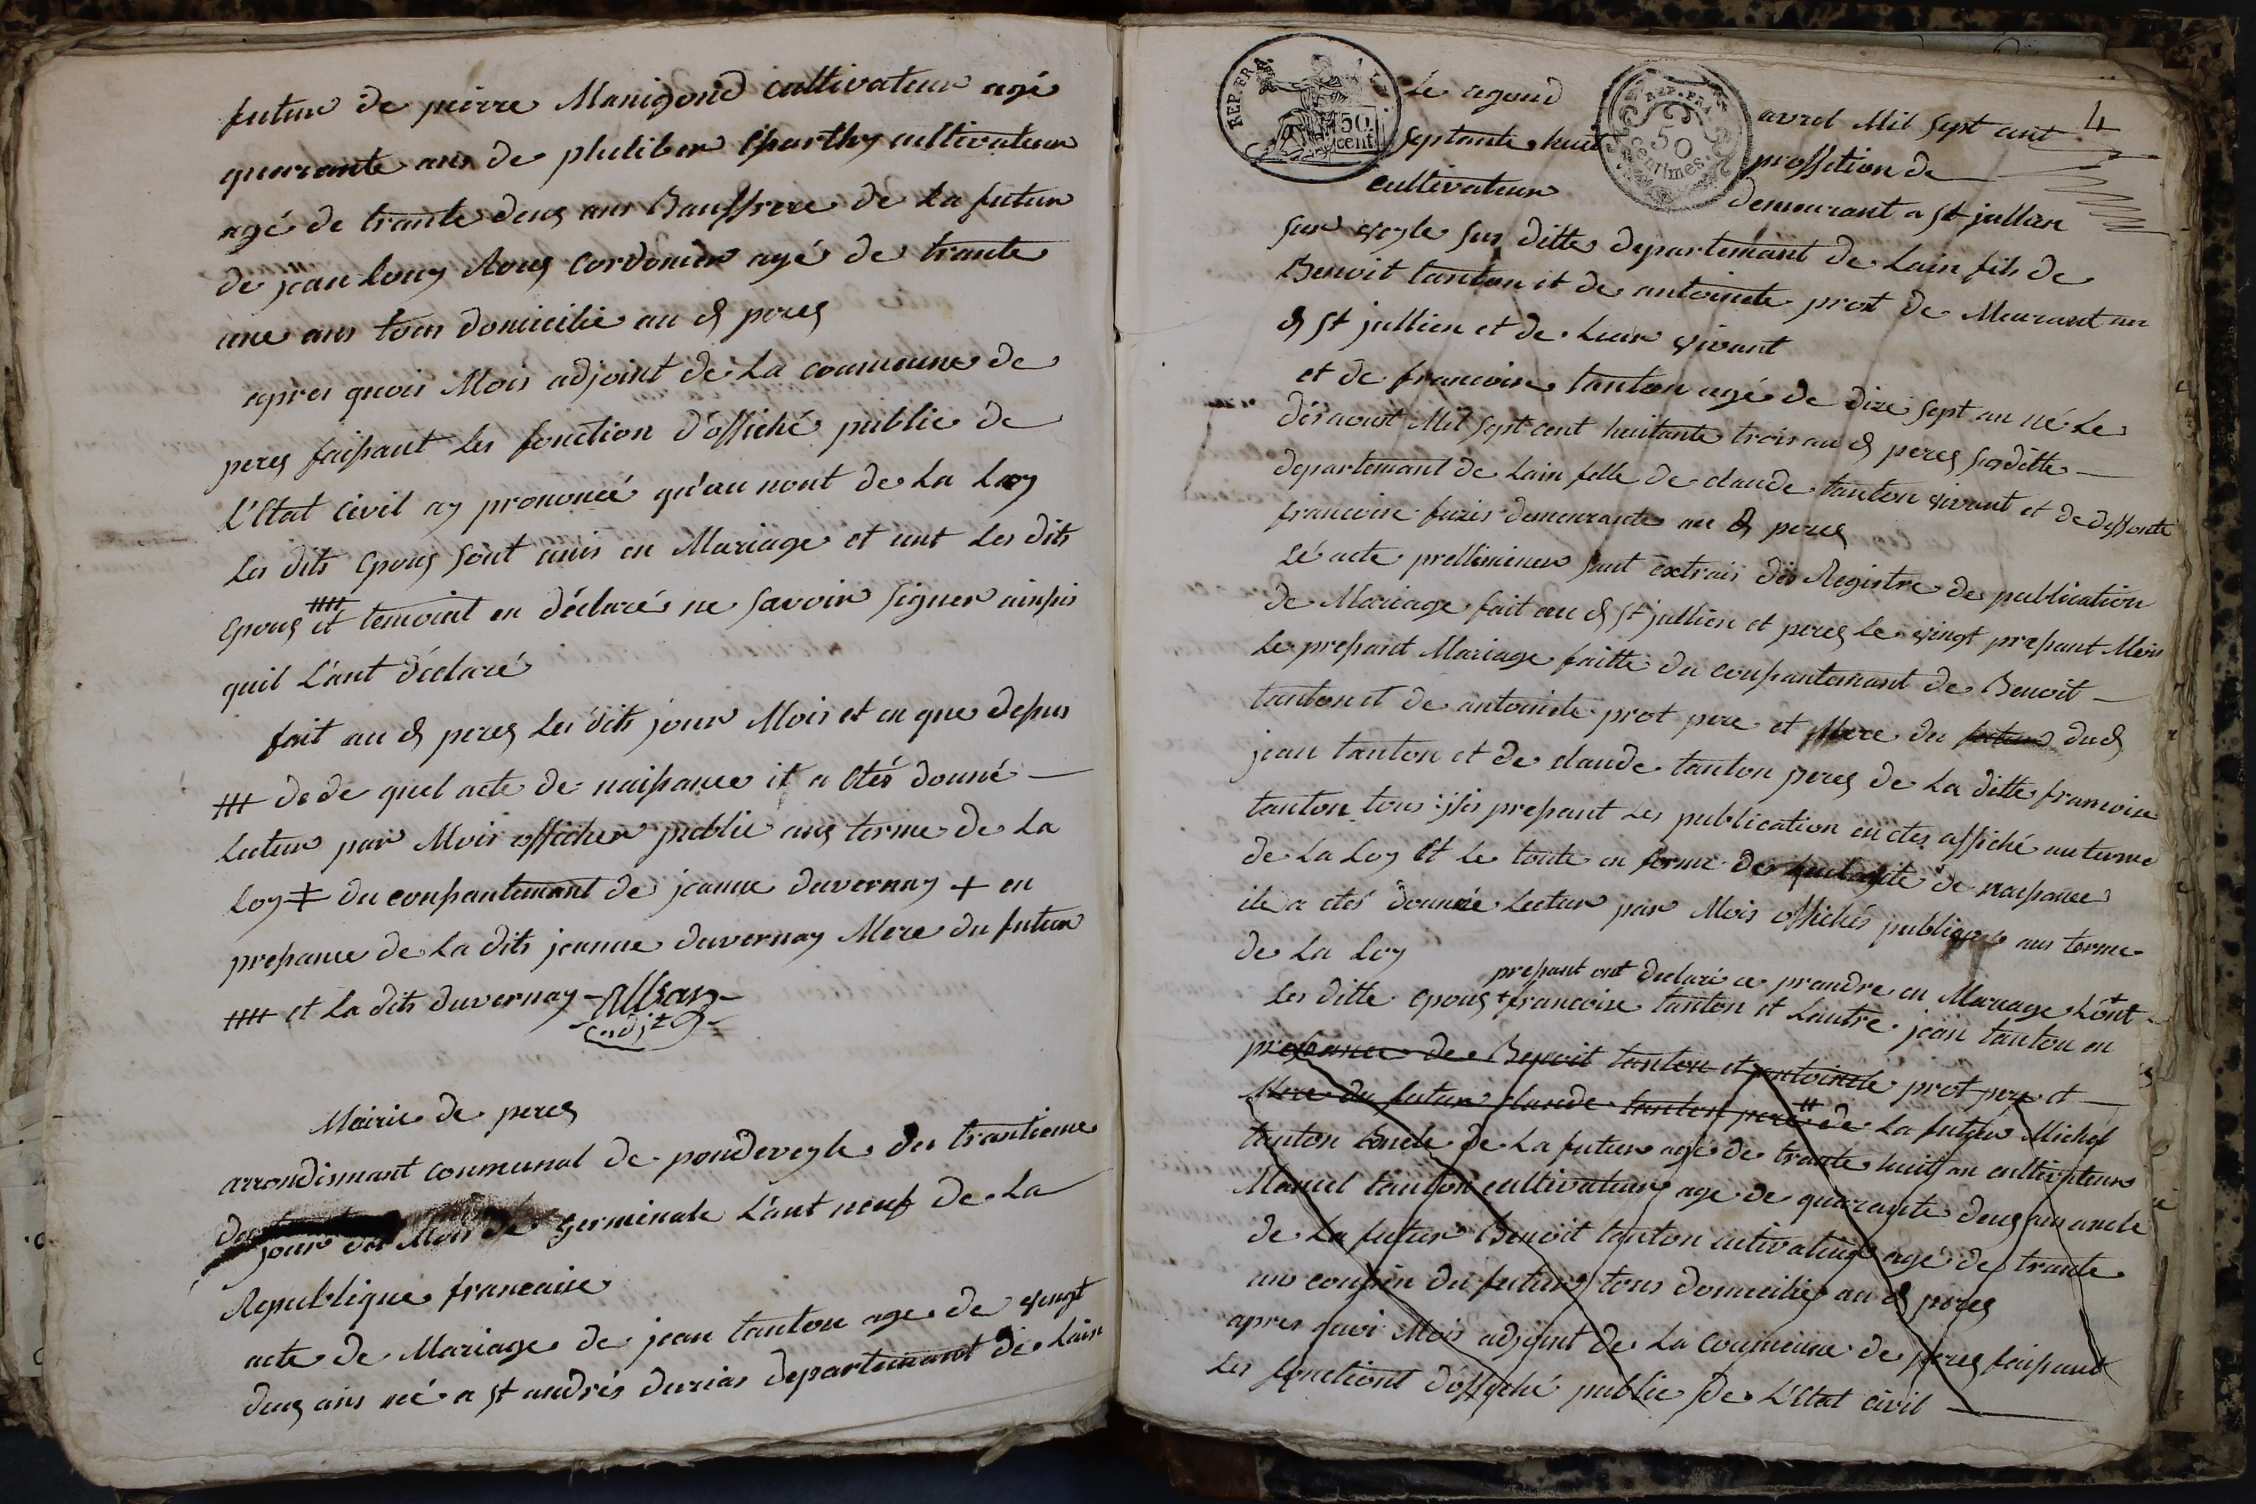 futur de pierre Manigond cultivateur agé
quarante ans de philiber Charthy cultivateur
agé de trante deux ans Baussrere de La futur
de jean louy Roux Cordonier agé de trante
une ans tous domicilié au d peres
apres quois Mois adjoint de La commune de
peres faissant Les fonction d'offiché public de
L'Etat Civil ay prononcé qu'au nont de La Loy
Les dits Epoux sont unis en Mariage et ont Les dits
Epoux et temoint en déclaré ne savoir signer ainssis
quil L'ant déclaré
fait au d peres Les dits jour Mois et en que dessus
de de quel acte de naissance il a Etés donné
Lectur par Mois officher public aux terme de La
Loy du conssantemant de jeanne duvernay + en
pressance de La dits jeanne duvernay Mere du futur
et La dits duvernay
adjt
Mairie de peres
arrondissmant communal de pondeveyle du trantieme
jour du Mois de Germinale L'ant neuf de La
Republique francaise
acte de Mariage de jean tanton age de vingt
deux ans né a st andrés durias departemant de Lain
REP. FRA. 50 cent.
REP. FRA. 50 centimes.
4
Le agond avrel Mil sept cent
septante huit proffetion de
cultivateur demeurant a st jullien
sur veyle sus ditte departemant de Lain fils de
Benoit tanton et de antoinete prot de Meurant au
d st jullien et de Leur vivant
et de francoise tanton agé de dixe sept an né Le
dés aoust Mil sept cent huitante trois au d peres susditte
departemant de Lain fille de claude tanton vivant et de deffonte
francoise furis demeurante au d peres
Lé acte prelliminer sant extrais dés Registre de publication
de Mariage fait au d st jullien et peres Le vingt pressant Mois
Le pressant Mariage faitte du conssantemant de Benoit
tanton et de antoinete prot pere et Mere du futur du d
jean tanton et de claude tanton peres de La ditte francoise
tanton tous issis pressant Les publication en etes affiché au terme
de La Loy Et Le toute en forme de naissance
ile a etés donnée Lectur par Mois offichés publique aux terme
de La Loy
pressant ont declaré ce prandre en Mariage L'ont
Les ditte Epoux + francoise tanton et Lautre jean tanton en
pressance de Benoit tanton et antoinete prot pere et
Mere du futur claude tanton pere de La futur Michel
tanton oncle de La futur agé de trante huit an cultivateur
Manuel tanton cultivateur age de quarante deux an oncle
de La futur Benoit tanton cultivateur agé de trante
un coussin du futur tous domicilié au d peres
apres quoi Mois adjoint de La Commune de peres faissant
Les fonctiont d'offiché public de L'Etat civil